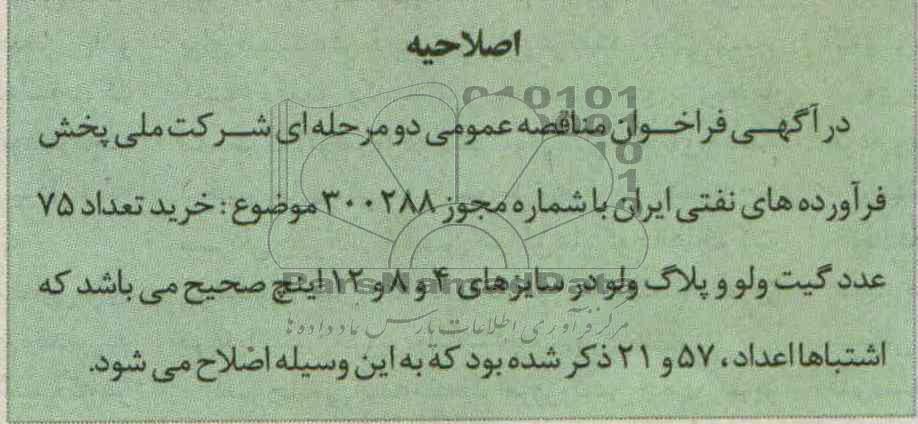 اصلاحیه
در آگهی فراخوان مناقصه عمومی دو مرحله ای شرکت ملی پخش
فرآورده های نفتی ایران با شماره مجوز ۳۰۰۲۸۸ موضوع : خرید تعداد ۷۵
عدد گیت ولو و پلاگ ولو در سایزهای ۴ و ۸ و ۱۲ اینچ صحیح می باشد که
اشتباها اعداد ، ۵۷ و ۲۱ ذکر شده بود که به این وسیله اصلاح می شود.
ParsNamadData
مرکز فرآوری اطلاعات پارس نماد داده ها